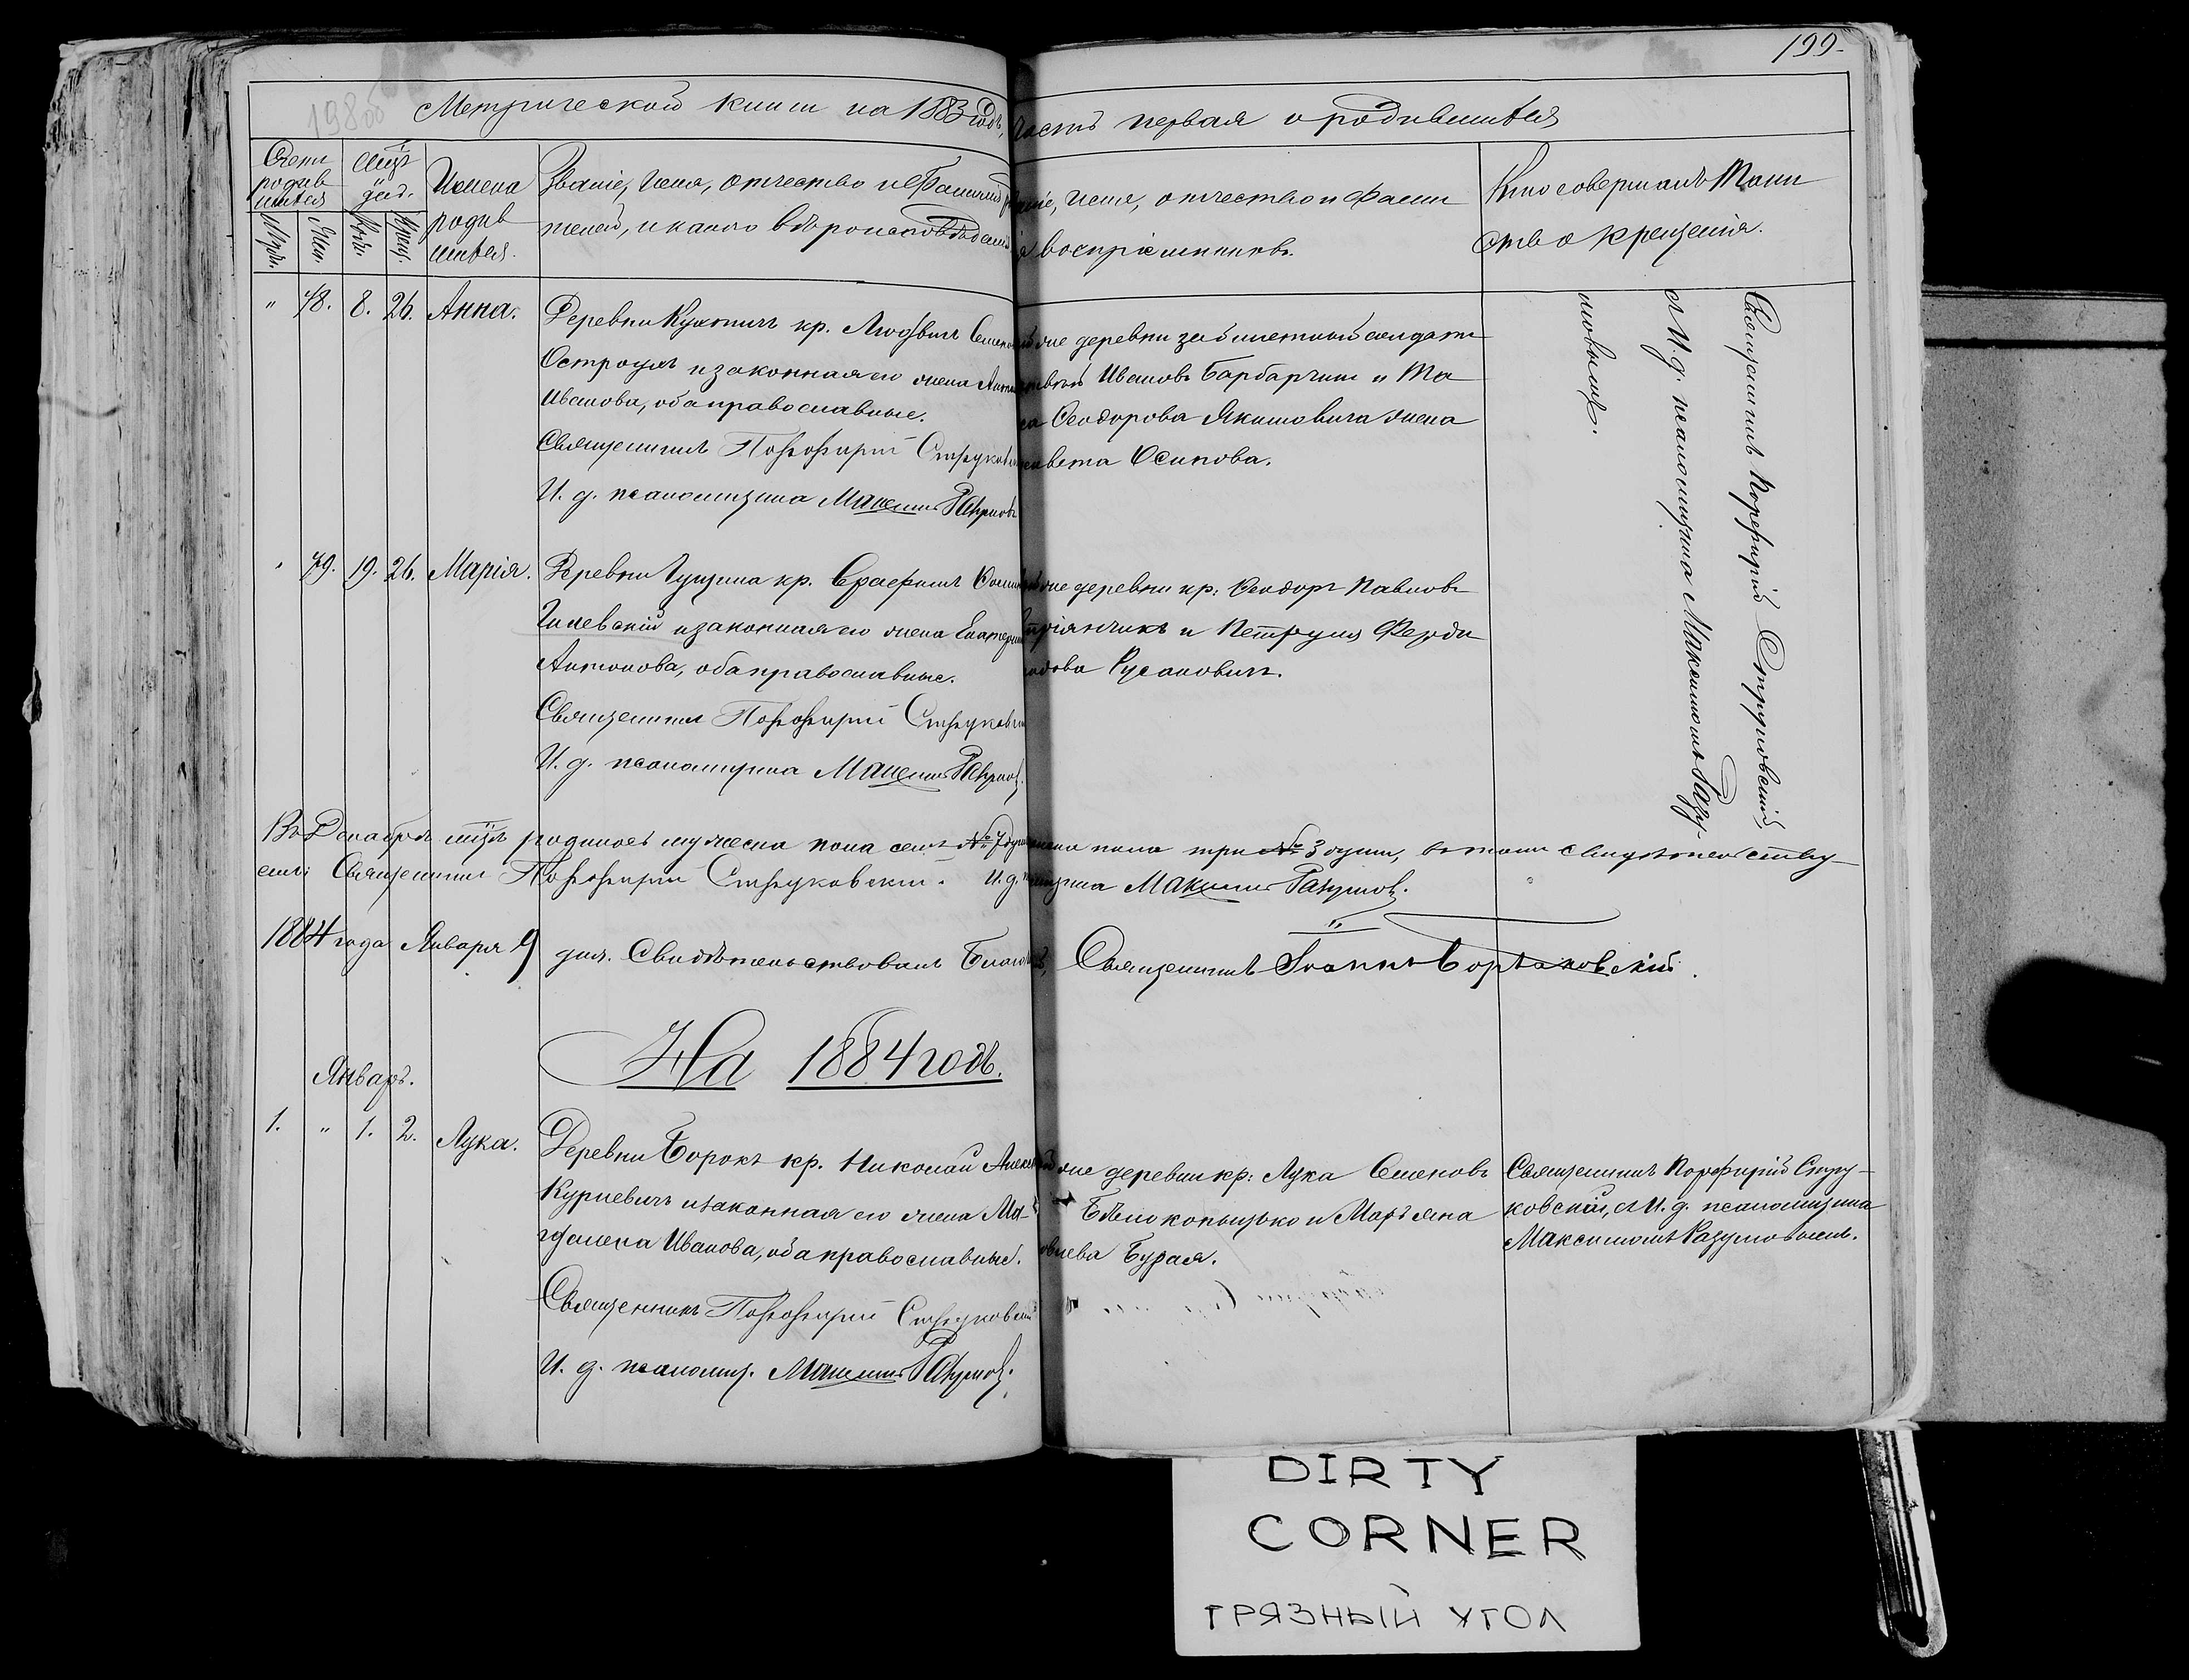 199.
198об
Метрической книги на 1883 годъ, часть первая о родившихся
Счетъ родив
шихся
Мцъ и
дни.
Имена
родив
шихся.
Званіе, имя, отчество и фамилія
телей, и какого вѣроисповѣданія
имя, отчество и фами
воспріемниковъ.
Кто совершалъ Таин
ство крещенія.
Муж.
Жен.
Рожд.
Крещ.
„ 78. 8. 26. Анна.
Деревни кр. Людвигъ
и законная его жена
Иванова, оба православные.
Священникъ Порфирій Струковскій
И. д. псаломщика Максимъ Разумовъ
же деревни забилетный солдатъ
Ивановъ Барбарчикъ и
Ѳеодорова Якимовича жена
Осипова.
Священникъ Порфирій Струковскій,
съ И. д. псаломщика Максимомъ Разу-
мовымъ.
„ 79. 19. 26. Марія.
Деревни кр.
Гилевскій и законная его жена Екатерина
Антонова, оба православные.
Священникъ Порфирій Струковскій
И. д. псаломщика Максимъ Разумовъ.
же деревни кр: Ѳеодоръ Павловъ
и Петруня
Русаковичъ.
Въ Декабрѣ мцѣ родилось мужеска пола семь № 7 душъ пола три № 3 души, въ томъ свидѣтельству-
емъ: Священникъ Порфирій Струковскій. И. д. Максимъ Разумовъ.
1884 года Января 9 дня. Свидѣтельствовалъ Священникъ Іоаннъ
На 1884 годъ.
Январь.
1. „ 1. 2. Лука.
Деревни Борокъ кр. Николай
Курневичъ и законная его жена Ма-
гдалена Иванова, оба православные.
Священникъ Порфирій Струковскій
И. д. псаломщ. Максимъ Разумовъ.
же деревни кр: Лука Семеновъ
Бѣлокопытко и Марьяна
Бурая.
Священникъ Порфирій Стру-
ковскій, съ И. д. псаломщика
Максимомъ Разумовымъ.
DIRTY
CORNER
ГРЯЗНЫЙ УГОЛ